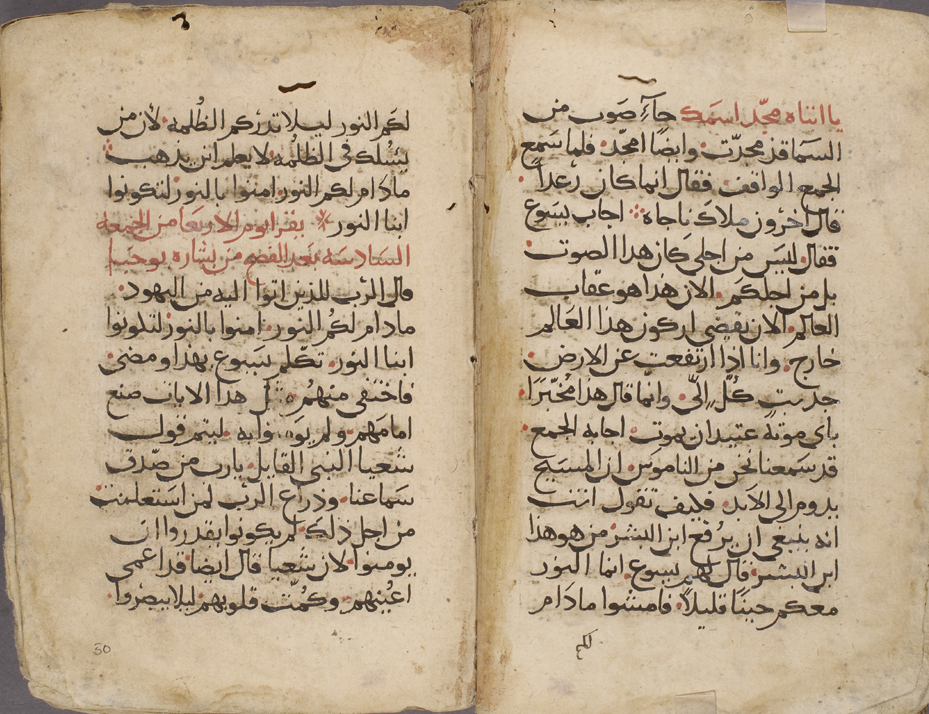 يا ابتاه مجّد اسمك جآء صَوت من
السما قد مجدّت وايضًا امجّد فلما سَمع
الجمع الواقف فقال انما كان رَعداً
قال اخرون ملاك ناجاه اجاب يسَوع
فقال ليسَ من اجلى كان هدا الصوت
بل من اجلكم الان هدا هو عقاب
العالم الان يقصى اركون هذا العَالم
خارج وانا ادا ارتفعت عن الارض
جدبت كُلٍّ الىّ وانما قال هدا مُخبّرًا
باى موتة عتيد ان يموت اجابه الجمع
قد سَمعنا نحن من الناموسَ ان المسَيح
يدوم الى الاَبد فكيف تقول انت
انه ينبغى ان يُرفع ابن البشر من هو هدا
ابن البشر قال لهم يسوع انما النور
معكم حينًا قليلاً فامشوا ما دَام
لكم
لكم النور ليلا تدرَكم الظُلمه لاَن من
يسْلك فى الظلُمه لا يعلم اين يدهب
ما دَام لكم النور امنوا بالنور لتكونوا
ابنا النور يقرا يوم الاربعَا من الجمعه
السَادسَه بَعد الفصح من بشاره يوحنا
قال الرَب للذين اتوا اليه من اليهود
ما دام لكُم النور امنوا بالنور لتكونوا
ابنا النور تكّلم يسَوع بهدا ومضى
فاختفى منهمُ هدا الايات صنع
امامَهم ولم يوَمنوا به ليتم قول
شعيا النبى القايل يارب من صّدق
سَماعنا ودرَاع الرَب لمن اسَتعلنت
من اجل دلك لم يكونوا يقدروا ان
يومنوا لان شعيا قال ايضا قد اعمى
اعُينهم وكمُت قلوبهم ليلا يبصرُوا
30